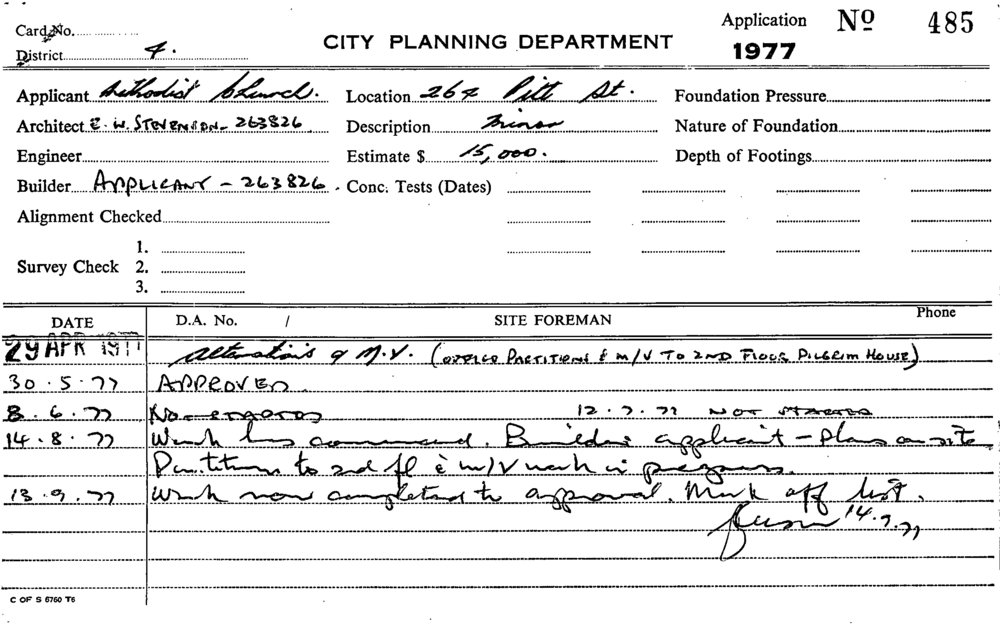 Card No.
District 4.
CITY PLANNING DEPARTMENT
Application No 485
1977
Applicant Methodist Church.
Location 264 Pitt St.
Foundation Pressure
Architect E. W. STEVENSON - 263826
Description Minor
Nature of Foundation
Engineer
Estimate $ 15,000.
Depth of Footings
Builder APPLICANT - 263826.
Conc. Tests (Dates)
Alignment Checked
Survey Check
1.
2.
3.
DATE
D.A. No. /
SITE FOREMAN
Phone
29 APR 1977 Alterations & M.V. (OFFICE PARTITIONS & M/V TO 2ND FLOOR PILGRIM HOUSE)
30.5.77 APPROVED
8.6.77 No 12.7.77 NOT STARTED
14.8.77 Work has commenced. Builder applicant - Plans on site
Partitions to 2nd fl & m/V work in progress.
13.9.77 Work now completed to approval. Mark off list.
14.9.77
C OF S 6760 T6